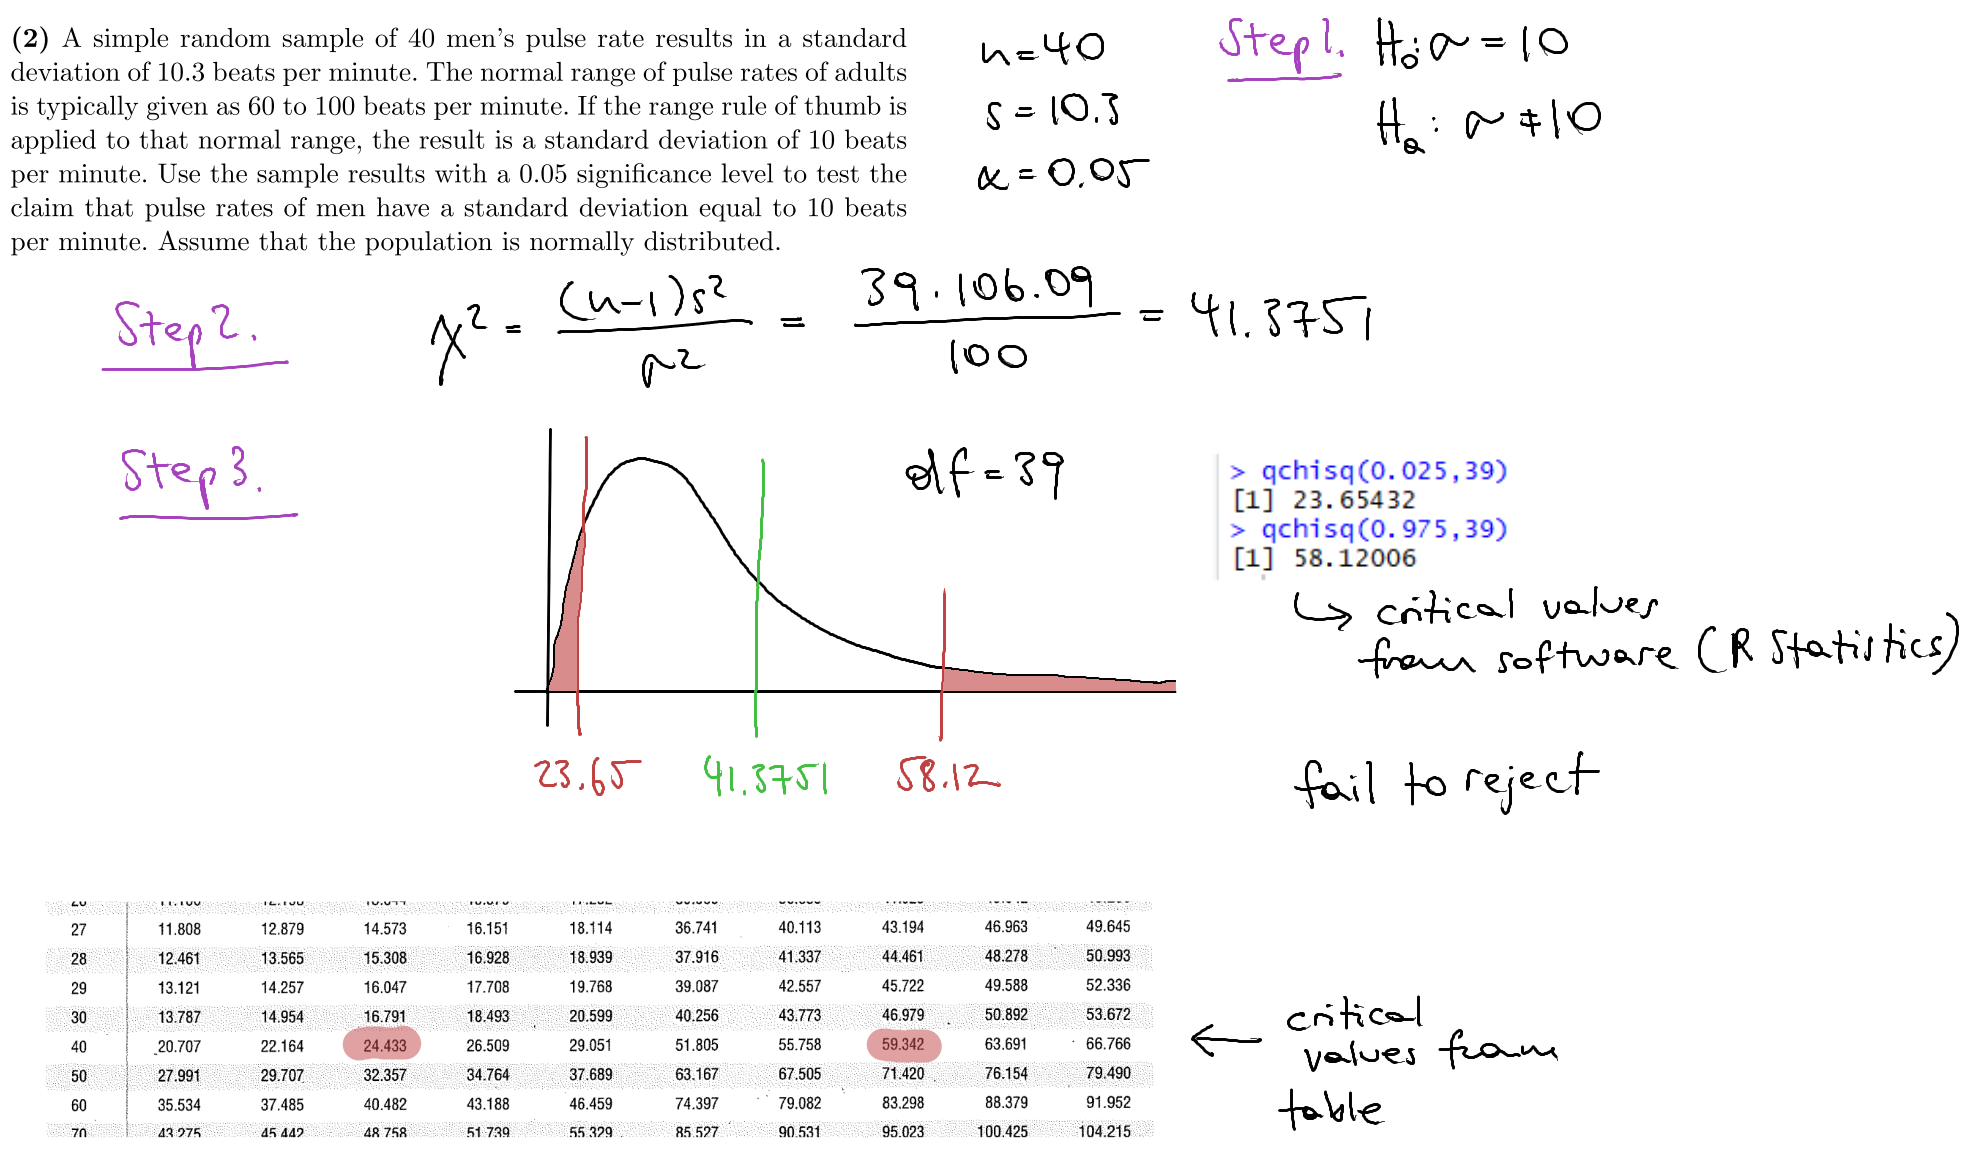 (2) A simple random sample of 40 men's pulse rate results in a standard
deviation of 10.3 beats per minute. The normal range of pulse rates of adults
is typically given as 60 to 100 beats per minute. If the range rule of thumb is
applied to that normal range, the result is a standard deviation of 10 beats
per minute. Use the sample results with a 0.05 significance level to test the
claim that pulse rates of men have a standard deviation equal to 10 beats
per minute. Assume that the population is normally distributed.
n=40
s = 10.3
α = 0.05
Step 1. H₀: σ = 10
Hₐ: σ ≠ 10
Step 2. χ² = (n-1)s² / σ² = 39 · 106.09 / 100 = 41.3751
Step 3.
df = 39
> qchisq(0.025,39)
[1] 23.65432
> qchisq(0.975,39)
[1] 58.12006
↳ critical values
from software (R Statistics)
23.65 41.3751 58.12
fail to reject
27 11.808 12.879 14.573 16.151 18.114 36.741 40.113 43.194 46.963 49.645
28 12.461 13.565 15.308 16.928 18.939 37.916 41.337 44.461 48.278 50.993
29 13.121 14.257 16.047 17.708 19.768 39.087 42.557 45.722 49.588 52.336
30 13.787 14.954 16.791 18.493 20.599 40.256 43.773 46.979 50.892 53.672
40 20.707 22.164 24.433 26.509 29.051 51.805 55.758 59.342 63.691 66.766
50 27.991 29.707 32.357 34.764 37.689 63.167 67.505 71.420 76.154 79.490
60 35.534 37.485 40.482 43.188 46.459 74.397 79.082 83.298 88.379 91.952
70 43.275 45.442 48.758 51.739 55.329 85.527 90.531 95.023 100.425 104.215
← critical
values from
table